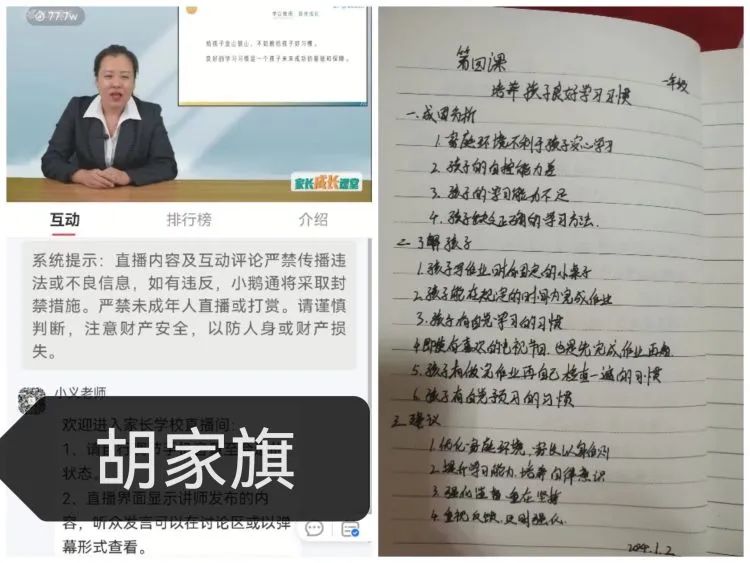 77.7w
给孩子金山银山，不如教给孩子好习惯。
良好的学习习惯是一个孩子未来成功的基础和保障。
家长成长课堂
互动
排行榜
介绍
系统提示：直播内容及互动评论严禁传播违
法或不良信息，如有违反，小鹅通将采取封
禁措施。严禁未成年人直播或打赏。请谨慎
判断，注意财产安全，以防人身或财产损
失。
小义老师
欢迎进入家长学校直播间：
1、请
状态。
2、直播界面显示讲师发布的内
容，听众发言可以在讨论区或以弹
幕形式查看。
胡家旗
第四课
一年级
培养孩子良好学习习惯
一.成因分析
1.家庭环境不利于孩子安心学习
2.孩子的自控能力差
3.孩子的学习能力不足
4.孩子缺乏正确的学习方法.
二.了解孩子
1.孩子写作业时有固定的小桌子
2.孩子能在规定的时间内完成作业
3.孩子有自觉学习的习惯
4.即使有喜欢的电视节目，也是先完成作业再看
5.孩子有做完作业再自己检查一遍的习惯
6.孩子有自觉预习的习惯
三.建议
1.优化家庭环境，家长以身作则
2.提升学习能力，培养自律意识
3.强化监督，重在坚持
4.重视反馈，及时强化.
2024.1.2